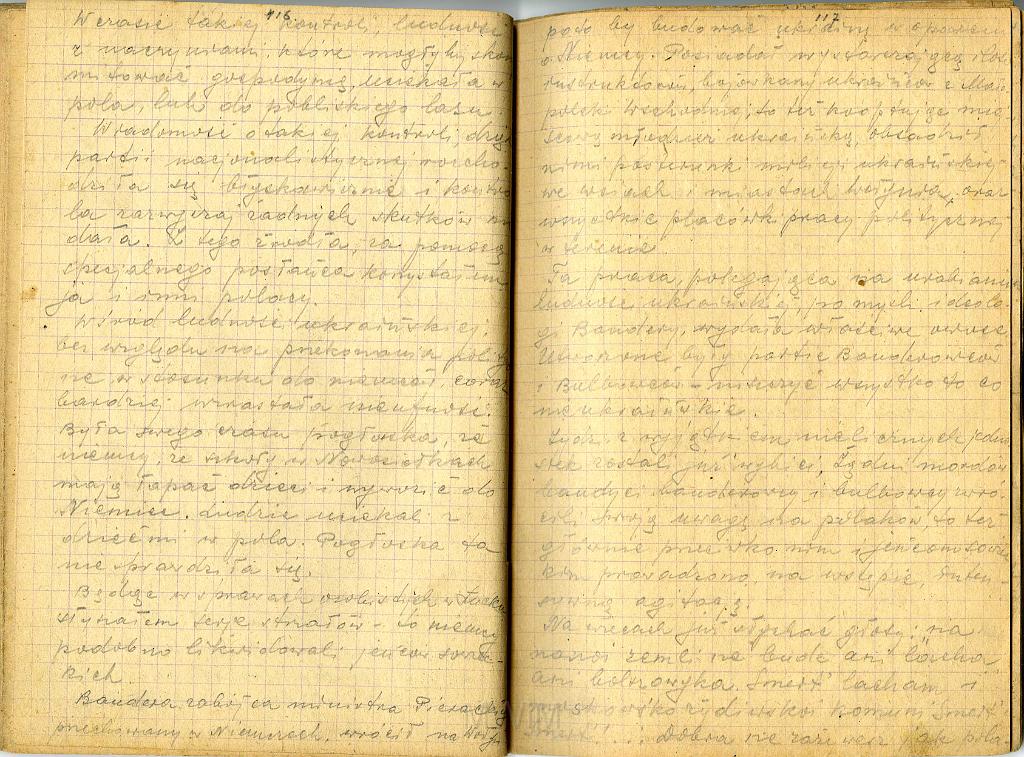 116
W czasie takiej kontroli, ludność
z naczyniami, które mogłyby skom
mitować gospodynię, uciekała w
pola, lub do pobliskiego lasu.
Wiadomość o takiej kontroli, drogą
partii nacjonalistycznej rozcho-
dziła się błyskawicznie i kontro
la zazwyczaj żadnych skutków nie
dała. Z tego źródła, za pomocą
specjalnego posłańca korzystałem
ja i inni polacy.
Wśród ludności ukraińskiej,
bez względu na przekonania polity
ne w stosunku do niemców, coraz
bardziej wzrastała nieufność.
Była swego czasu pogłoska, że
niemcy, ze szkoły w Nowosiółkach
mają łapać dzieci i wywozić do
Niemiec. Ludzie uciekali z
dziećmi w pola. Pogłoska ta
nie sprawdziła się.
Będąc w sprawach osobistych w Łucku
słyszałem serje strzałów - to niemcy
podobno likwidowali jeńców sowiec-
kich.
Bandera zabójca ministra Pierackiego
przechowany w Niemczech, wrócił na Wołyń
117
państwo by budować ukraiński w oparciu
o Niemcy. Posiadał wystarczającą ilość
instruktorów, bojówkarzy ukraińców z Mało
polski Wschodniej, to też kooptując miej
scową młodzież ukraińską, obsadził
nimi posterunki milicji ukraińskiej
we wsiach i miastach Wołynia, oraz
wszystkie placówki pracy politycznej
w terenie.
Ta praca, polegająca na urabianiu
ludności ukraińskiej, po myśli ideolo
gi Bandery, wydała właściwe owoce.
Utworzone były partie Banderowców
i Bulbowców - niszczyć wszystko to co
nieukraińskie.
Żydzi z wyjątkiem nielicznych jedno
stek zostali już wybici. Żądni mordów
bandyci banderowcy i bulbowcy zwró
cili swoją uwagę na polaków, to też
głównie przeciwko nim i jeńcom sowiec
kim prowadzono, na wstępie, inten-
sywną agitację.
Na wiecach już słychać głosy: "na
naszoj zemli ne bude ani lacha
ani bolszowyka. Smert' lacham i
moskowsko żydiwskoj komuni Smert'
Smert'!... Dobra nie zazwecz jak pola